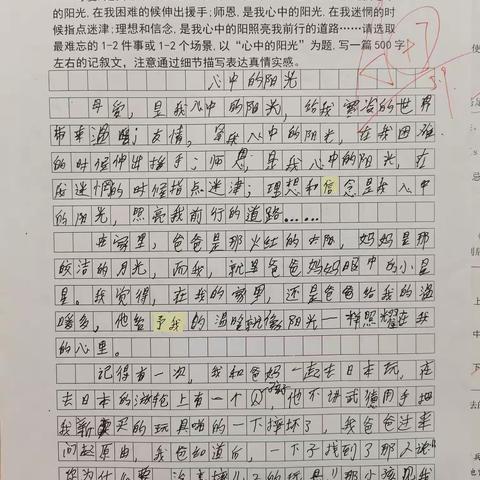 的阳光,在我困难的候伸出援手;师恩,是我心中的阳光,在我迷惘的时
候指点迷津;理想和信念,是我心中的阳照亮我前行的道路……请选取
最难忘的1-2件事或1-2个场景,以“心中的阳光”为题,写一篇500字
左右的记叙文,注意通过细节描写表达真情实感。
心中的阳光
母爱,是我心中的阳光,给我寒冷的世界
带来温暖;友情,是我心中的阳光,在我困难
的时候伸出援手;师恩,是我心中的阳光,在
我迷惘的时候指点迷津;理想和信念是我心中
的阳光,照亮我前行的道路……
在家里,爸爸是那火红的太阳,妈妈是那
皎洁的月光,而我,就是爸爸妈妈眼中的小星
星。我觉得,在我的家里,还是爸爸给我的温
暖多,他给予我的温暖就像阳光一样照耀在我
的心里。
记得有一次,我和爸妈一起去日本玩,在
去日本的游轮上有一个,他不讲武德用手把
我新买的玩具啪的一下摔坏了,我爸爸过来
问起原由,我爸知道后,一下子找到了那人说
你为什么要